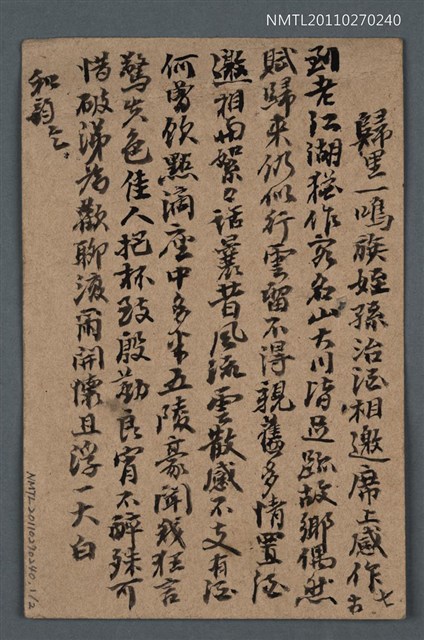 NMTL20110270240
歸里一鳴族姪孫治酒相邀席上感作 七古
到老江湖猶作客名山大川皆足跡故鄉偶然
賦歸來仍似行雲留不得親舊多情置酒
邀相與絮々話曩昔風流雲散感不支有酒
何曾飲點滴座中多半五陵豪聞我狂言
驚失色佳人抱杯致殷勤良宵不醉殊可
惜破涕為歡聊渡爾開懷且浮一大白
和韵
NMTL20110270240.1/2